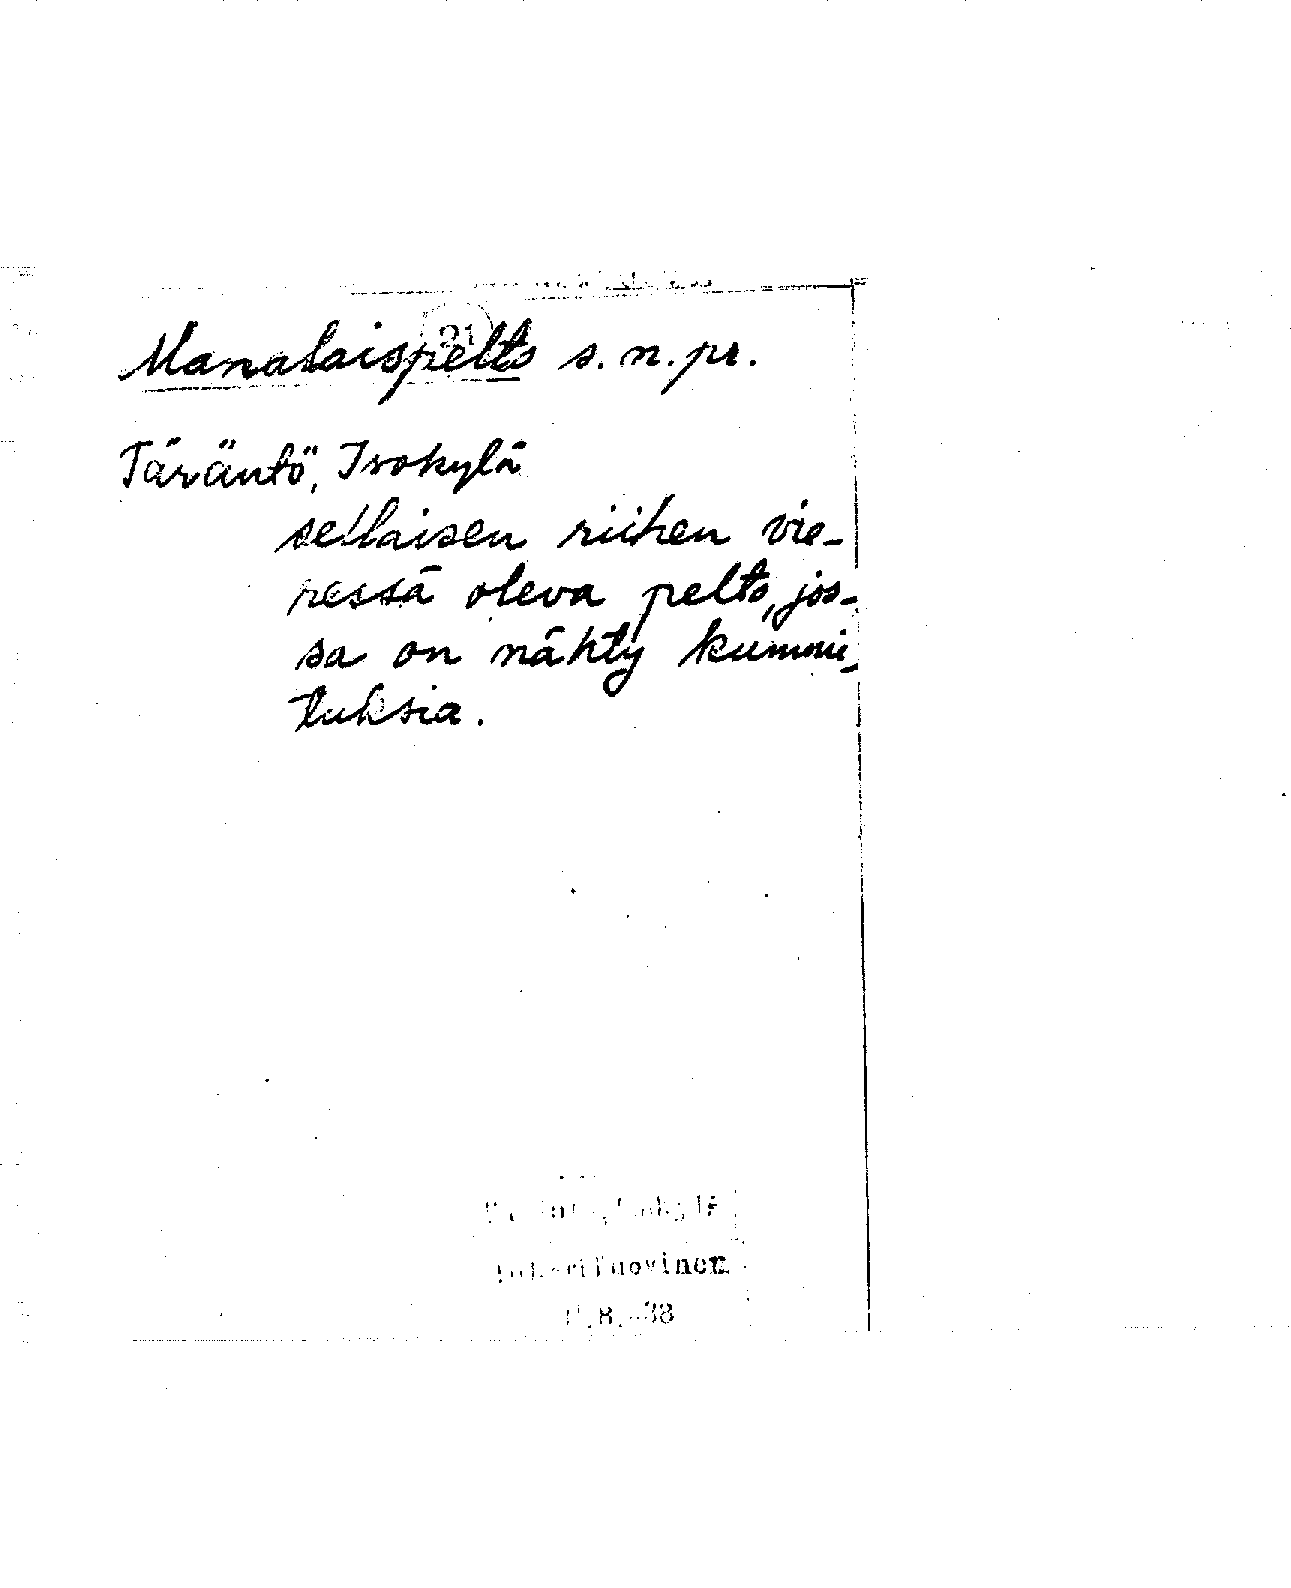 21
Manalaispelto s. n. pr.
Täräntö, Isokylä
sellaisen riihen vie-
ressä oleva pelto, jos-
sa on nähty kummi-
tuksia.